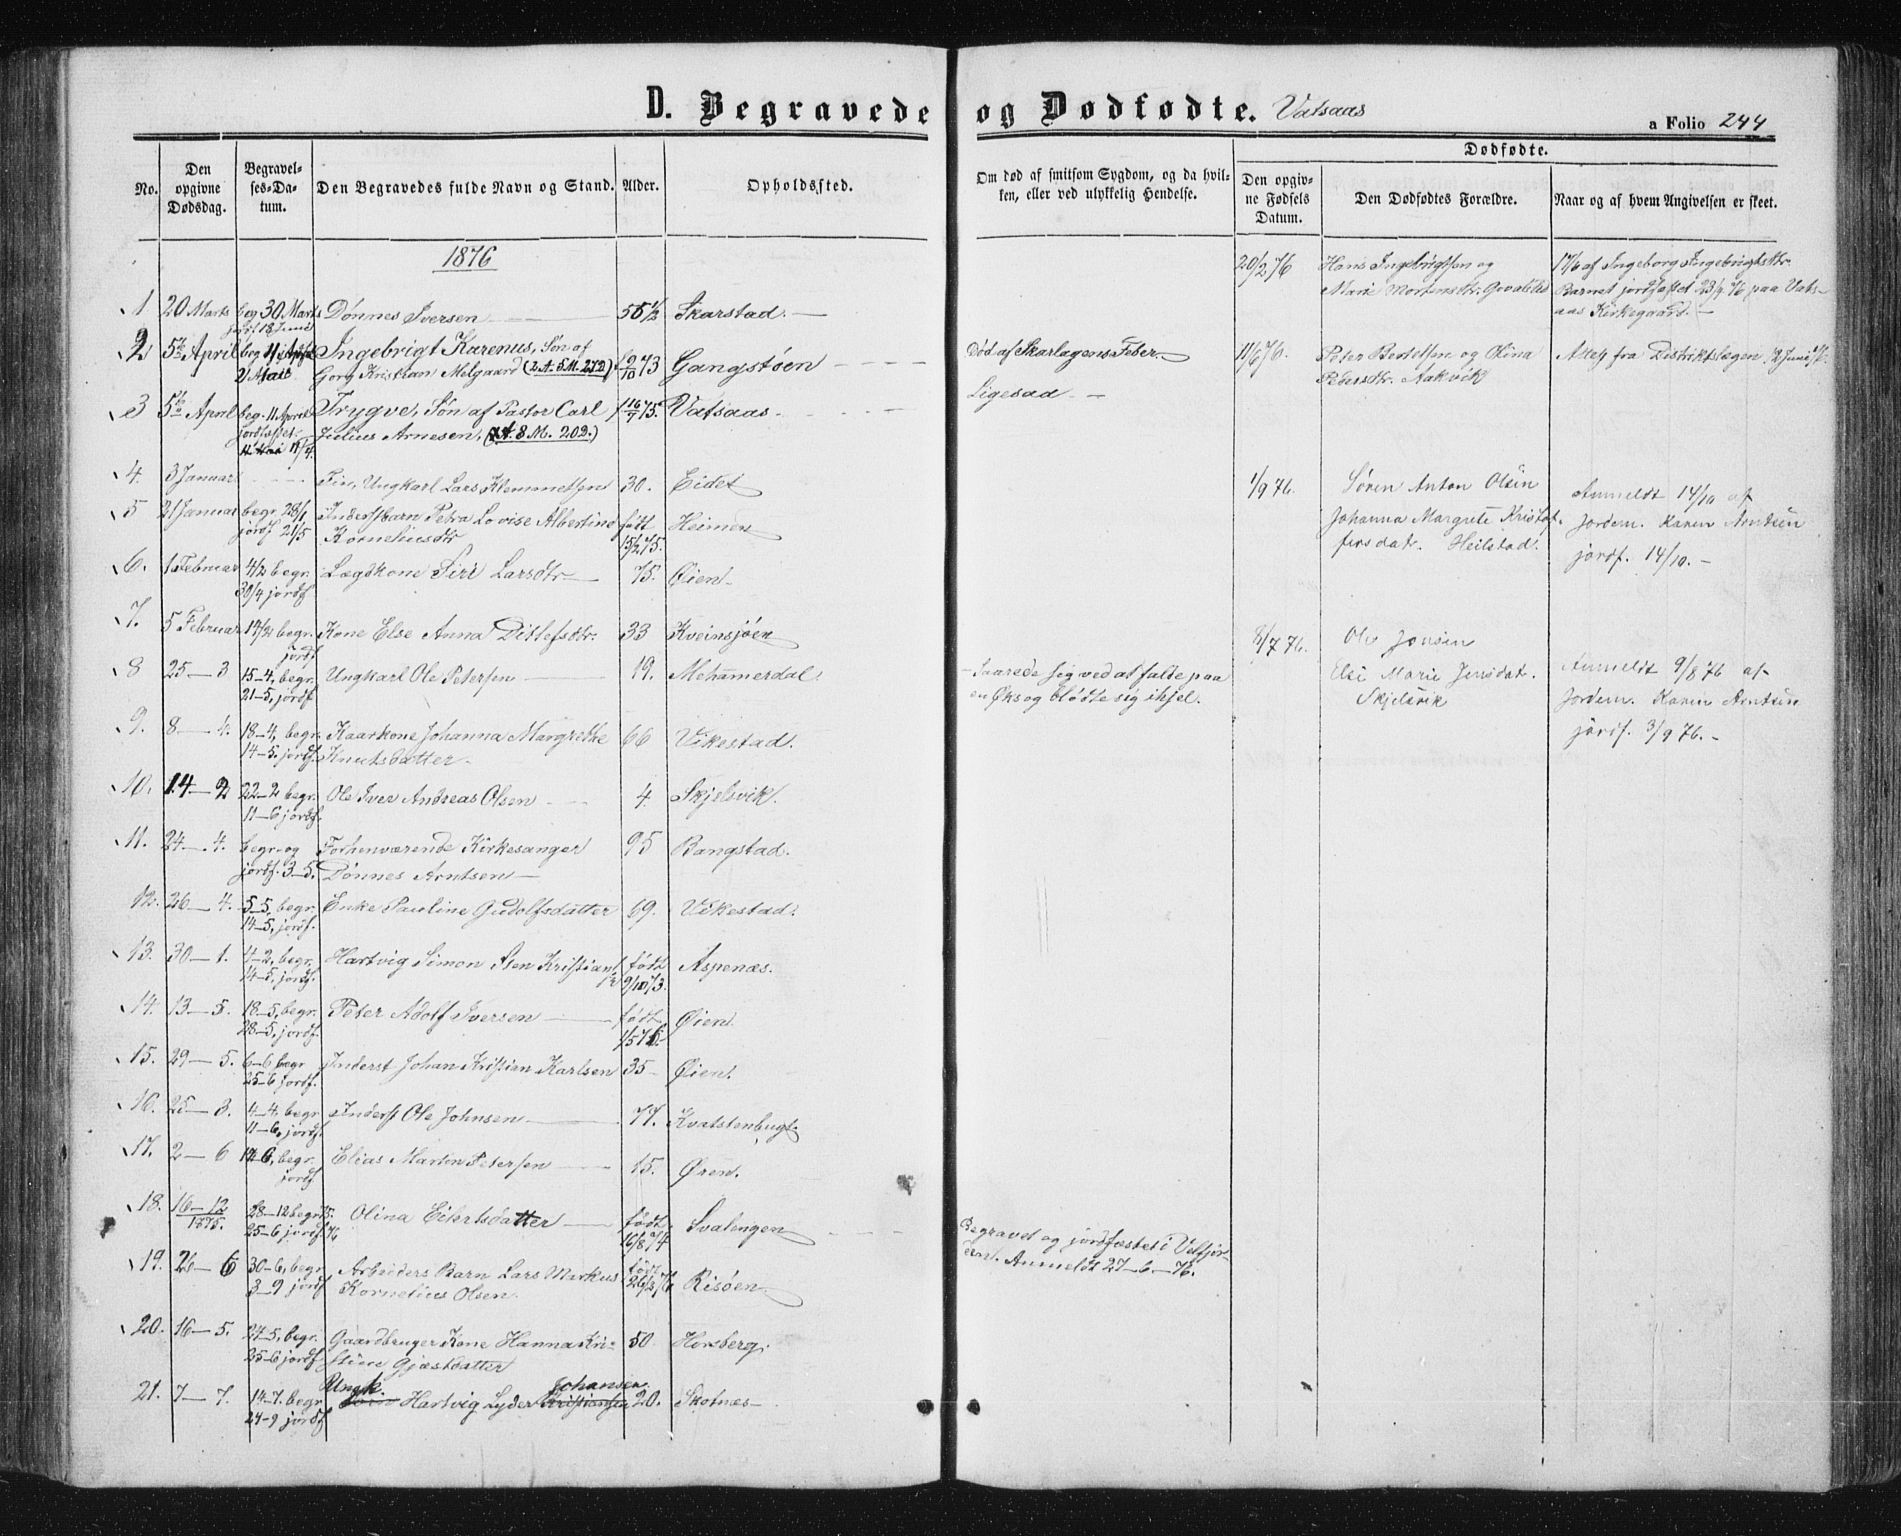 D. Begravede og Dødfødte. Vatsaas
a Folio 244
No.
Den opgivne Dødsdag.
Begravelses-Datum.
Den Begravedes fulde Navn og Stand.
Alder.
Opholdssted.
Om død af smitsom Sygdom, og da hvilken, eller ved ulykkelig Hendelse.
Dødfødte.
Den opgivne Fødsels Datum.
Den Dødfødtes Forældre.
Naar og af hvem Angivelsen er skeet.
1876
1 20 Marts beg 30 Marts Dønnes Iversen 56 1/2 Skarstad.
jordf 18 Juni
2 5te April beg 11 April Ingebrigt Karenus, Søn af 2/10 73 Gangstøen Død af Skarlagens Feber
21 Mai Gorg Kristian Melgaard (2 A. 5 M. 27 D)
3 5te April beg. 11 April Trygve, Søn af Pastor Carl 16/7 75. Vatsaas Ligesaa
jordfæstet 11/4. Julius Arnesen, (8 M. 20 D.)
4. 3 Januar Fin, Ungkarl Lars Klemmetsen 30. Eidet
5 21 Januar begr. 28/1 Inderstbarn Petra Lovise Albertine født Heimen
jordf 21/5 Korneliusdtr 15/2 75.
6. 1. Februar 4/2 begr. Lægdkone Siri Larsdtr 75. Øien
30/4 jordf
7. 5 Februar 14/2 begr. Kone Else Anna Ditlefsdtr. 33 Kveinsjøen
jordf
8 25–3 15–4, begr. Ungkarl Ole Petersen 19. Mehammerdal – Saarede sig ved at falde paa
21–5, jordf en Øks og blødte sig ihjel.
9. 8–4. 18–4, begr. Kaarkone Johanna Margrethe 66 Vikestad.
14–5. jordf Knutsdatter
10. 14–2 22–2 begr. Ole Iver Andreas Olsen 4. Skjelsvik.
11–6 jordf.
11. 24–4. begr. og Forhenværende Kirkesanger 95 Bangstad.
jordf. 3–5. Dønnes Arntsen
12. 26–4. 5–5, begr. Enke Pauline Gudolfsdatter 69. Vikestad.
14–5, jordf.
13. 30–1. 4–2, begr. Hartvig Simon Sten Kristians født Aspenæs.
14–5, jordf. 9/10 73.
14. 13–5. 18–5, begr. Peter Adolf Iversen født Øien
28–5, jordf. 1/5 76.
15. 29–5. 6–6 begr Inderst Johan Kristian Karlsen 35 Øien.
25–6 jordf.
16. 25–3. 4–4. begr Inderst Ole Johnsen 77. Kvatstenbugt
11–6, jordf.
17. 2–6 12–6, begr. Elias Martin Petersen 15. Øren.
jordf
18. 16–12 1875. 28–12 begr. 75. Olina Eihrtsdatter født Svalingen
25–6 jordf. 76 16/8 74
19. 26–6 30–6, begr Arbeiders Barn Lars Markus født Risøen Begravet og jordfæstet i Velfjor-
3–9 jordf Kornelius Olsen. 26/2 76 den. Anmeldt 27–6–76.
20. 16–5. 24–5, begr. Gaardbruger Kone Hanna Kri- 50 Horsberg.
25–6 jordf stine Gjæstdatter
21. 7–7. 14–7. begr. Ungk. Hartvig Lyder Kristiansen Johansen 20. Skotnes
24–9 jordf
20/2 76 Hans Ingebrigtsen og 17/6 af Ingeborg Ingebrigtsdtr.
Marie Mortensdtr. Barnet jordfæstet 23/9 76 paa Vats-
aas Kirkegaard.
11/6 76. Peter Bertelsen og Olina Attest fra Distriktslægen
Pedersdtr. Aakvik
1/9 76. Søren Anton Olsen Anmeldt 14/10 af
Johanna Margrete Kristof- Jordem. Karen Arntsen
fersdat. Heilstad. jordf. 14/10.
8/7 76. Ole Jonsen
Else Marie Jensdat. Anmeldt 9/8 76 af
Skjelsvik Jordem. Karen Arntsen
jordf. 3/9 76.